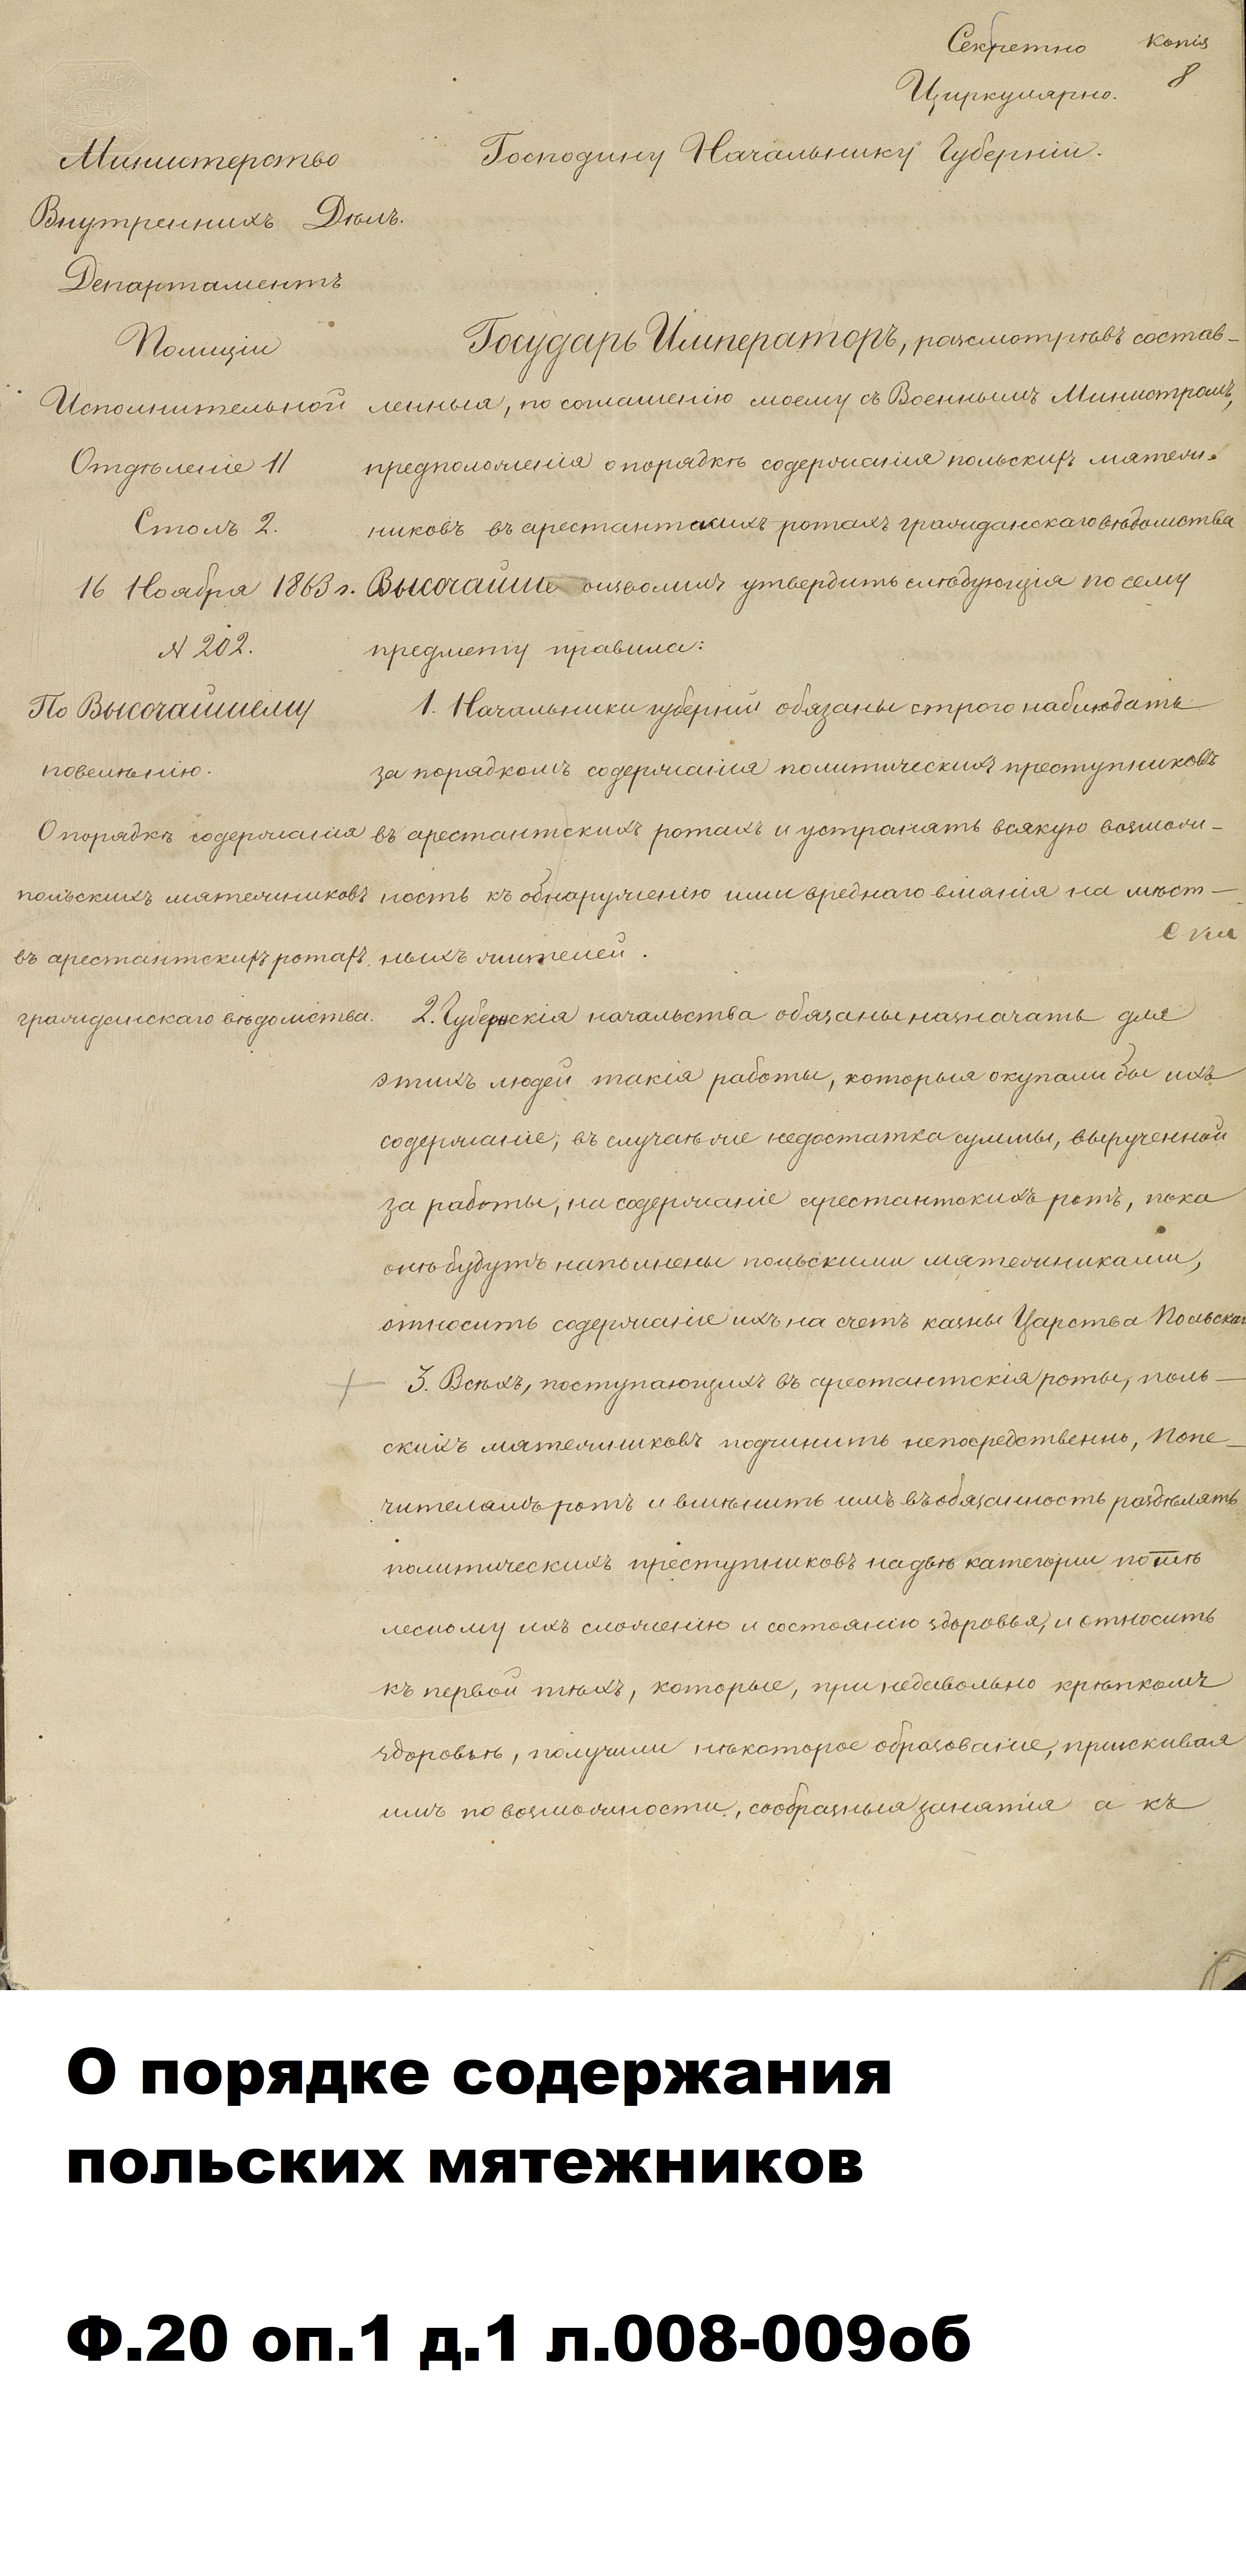 Секретно Копія
8
Циркулярно.
Министерство
Внутреннихъ Дѣлъ.
Департаментъ
Полиціи
Исполнительной
Отдѣленіе II
Столъ 2.
16 Ноября 1863 г.
№ 202.
По Высочайшему
повелѣнію.
О порядкѣ содержанія
польскихъ мятежниковъ
въ арестантскихъ ротахъ
гражданскаго вѣдомства.
Господину Начальнику Губерніи.
Государь Императоръ, разсмотрѣвъ состав-
ленныя, по соглашенію моему съ Военнымъ Министромъ,
предположенія о порядкѣ содержанія польскихъ мятеж-
никовъ въ арестантскихъ ротахъ гражданскаго вѣдомства
Высочайше соизволилъ утвердить слѣдующія по сему
предмету правила:
1. Начальники губерній обязаны строго наблюдать
за порядкомъ содержанія политическихъ преступниковъ
въ арестантскихъ ротахъ и устранять всякую возмож-
ность къ обнаруженію ими вреднаго вліянія на мѣст-
ныхъ жителей.
2. Губернскія начальства обязаны назначать для
этихъ людей такія работы, которыя окупали бы ихъ
содержаніе; въ случаѣ же недостатка суммы, вырученной
за работы, на содержаніе арестантскихъ ротъ, пока
онѣ будутъ наполнены польскими мятежниками,
относить содержаніе ихъ на счетъ казны Царства Польскаго
3. Всѣхъ, поступающихъ въ арестантскія роты, поль-
скихъ мятежниковъ подчинить непосредственно, Попе-
чителямъ ротъ и вмѣнить имъ въ обязанность раздѣлять
политическихъ преступниковъ на двѣ категоріи по тѣ
лесному ихъ сложенію и состоянію здоровья, и относить
къ первой тѣхъ, которые, при недовольно крѣпкомъ
здоровьѣ, получили нѣкоторое образованіе, пріискивая
имъ по возможности, сообразныя занятія а къ
О порядке содержания
польских мятежников
Ф.20 оп.1 д.1 л.008-009об